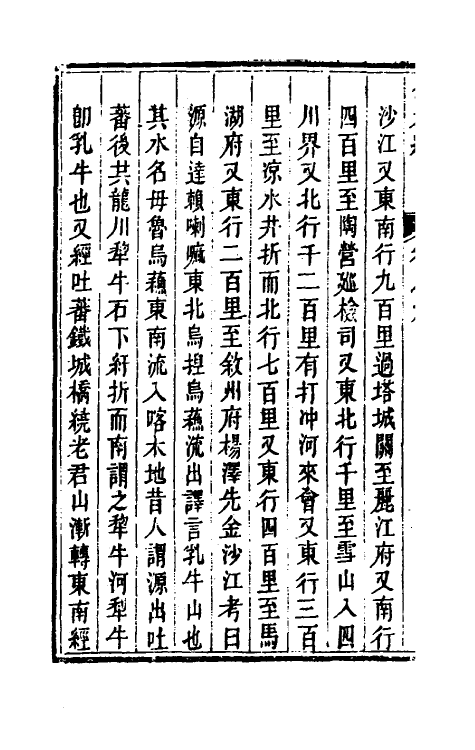 沙江又東南行九百里過塔城關至麗江府又南行
四百里至陶營廵檢司又東北行千里至雪山入四
川界又北行千二百里有打冲河來會又東行三百
里至凉水井折而北行七百里又東行四百里至馬
湖府又東行二百里至敘州府楊澤先金沙江考曰
源自達賴喇嘛東北烏捏烏蘓流出譯言乳牛山也
其水名毋魯烏蘓東南流入喀木地昔人謂源出吐
蕃後共龍川犁牛石下紆折而南謂之犂牛河犁牛
卽乳牛也又經吐蕃鐵城橋繞老君山漸轉東南經